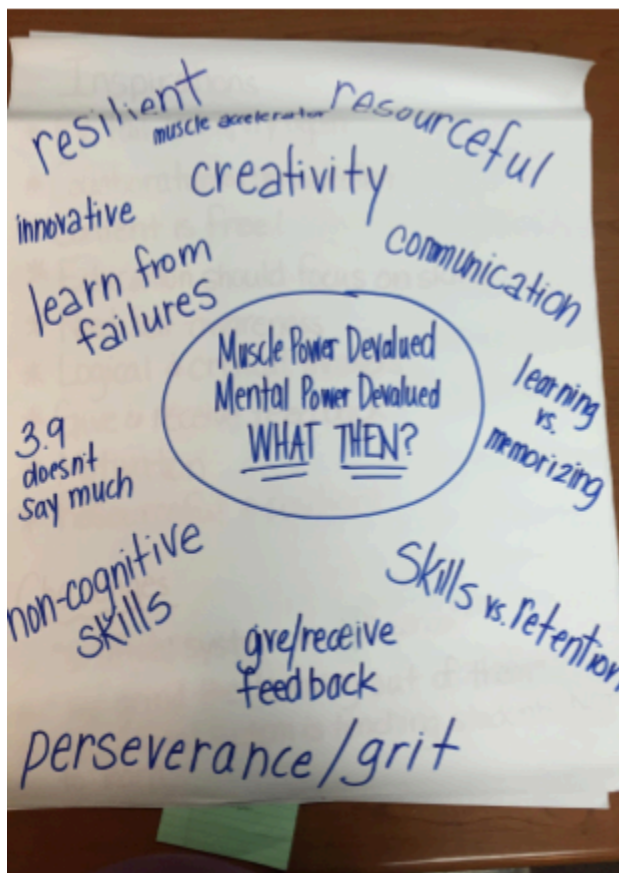 resilient
muscle accelerator
resourceful
creativity
innovative
communication
learn from
failures
Muscle Power Devalued
Mental Power Devalued
WHAT THEN?
learning
vs.
memorizing
3.9
doesn't
say much
non-cognitive
skills
Skills vs. retention
give/receive
feedback
perseverance/grit